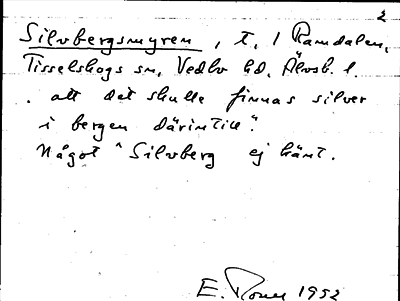 2
Silvbergsmyren, t. / Ramdalen,
Tisselskogs sn, Vedbo hd, Älvsb. l.
. att det skulle finnas silver
i bergen därintill".
Något ^ Silvberg ej känt.
E. 1952